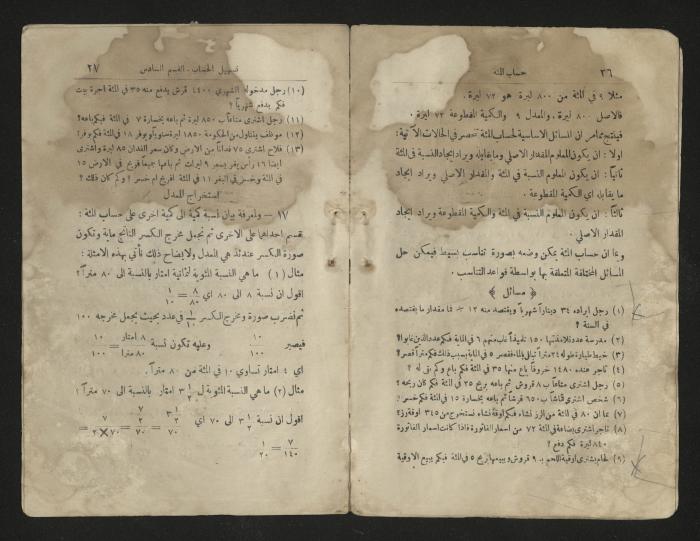 ٢٦ حساب المئة
مثلا ٩ في المئة من ٨٠٠ ليرة هو ٧٢ ليرة .
فالاصل ٨٠٠ ليرة . والمعدل ٩ والكمية المقطوعة ٧٢ ليرة .
فينتج مما مر ان المسائل الاساسية لحساب المئة تنحصر في الحالات الآتية :
اولاً : ان يكون المعلوم المقدار الاصلي وما يقابله ويراد ايجاد النسبة في المئة
ثانياً : ان يكون المعلوم النسبة في المئة والمقدار الاصلي ويراد ايجاد
ما يقابله اي الكمية المقطوعة .
ثالثاً : ان يكون المعلوم النسبة في المئة والكمية المقطوعة ويراد ايجاد
المقدار الاصلي .
وبما ان حساب المئة يمكن وضعه بصورة تناسب بسيط فيمكن حل
المسائل المختلفة المتعلقة بها بواسطة قواعد التناسب .
﴿ مسائل ﴾
(١) رجل ايراده ٣٤ ديناراً شهرياً ويقتصد منه ١٢ ٪ فما مقدار ما يقتصده
في السنة ؟
(٢) مدرسة عدد تلامذتها ١٥٠ تلميذاً غاب منهم ٦ في المئة فكم عدد الذين غابوا؟
(٣) خيط طيارة طوله ٢٤ متراً تبلل بالماء فقصر ٥ في المئة بسبب ذلك فكم متراً قصر؟
(٤) تاجر عنده ١٤٨٠ خروفاً باع منها ٣٥ في المئة فكم باع وكم بقي له ؟
(٥) رجل اشترى متاعاً ب ٨ قروش ثم باعه بربح ٢٥ في المئة فكم كان ربحه ؟
(٦) شخص اشترى قماشاً ب ٦٥٠ قرشاً ثم باعه بخسارة ١٥ في المئة فكم خسر ؟
(٧) بما ان ٨٠ في المئة من الرز نشاء فكم اوقة نشاء نستخرج من ٣٤٥ اوقة رز؟
(٨) تاجر اشترى بضاعة في المئة ٧٢ من اسعار الفاتورة فاذا كانت اسعار الفاتورة
٨٤٠ ليرة فكم دفع ؟
(٩) لحام يشتري اوقية اللحم بـ ٩ قروش ويبيعها بربح ٥ في المئة فبكم يبيع الاوقية
تسهيل الحساب - القسم السادس ٢٧
(١٠) رجل مدخوله الشهري ١٤٠٠ قرش يدفع منه ٣٥ في المئة اجرة بيت
فكم يدفع شهرياً ؟
(١١) رجل اشترى متاعاً ب ٨٥٠ ليرة ثم باعه بخسارة ٧ في المئة فبكم باعه؟
(١٢) موظف يتناول من الحكومة ١٨٥٠ ليرة سنوياً يوفر ١٨ في المئة فكم يوفر؟
(١٣) فلاح اشترى ٧٥ فداناً من الارض وكان سعر الفدان ٨٥ ليرة واشترى
ايضا ١٦ رأس بقر بسعر ٩ ليرات ثم باعها جميعاً فربح في الارض ١٥
في المئة وخسر في البقر ١١ في المئة افربح ام خسر ؟ وكم كان ذلك ؟
استخراج المعدل
١٧ – ولمعرفة بيان نسبة كمية الى كمية اخرى على حساب المئة :
تقسم احداهما على الاخرى ثم تجعل مخرج الكسر الناتج مئة وتكون
صورة الكسر عندئذ هي المعدل ولايضاح ذلك نأتي بهذه الامثلة :
مثال (١) ما هي النسبة المئوية لثمانية امتار بالنسبة الى ٨٠ متراً؟
اقول ان نسبة ٨ الى ٨٠ اي ٨/٨٠ = ١/١٠
ثم نضرب صورة ومخرج الكسر ١/١٠ في عدد بحيث يجعل مخرجه ١٠٠
فيصير ١٠/١٠٠ وعليه تكون نسبة ٨ امتار/٨٠ متراً = ١٠/١٠٠
اي ٤ امتار تساوي ١٠ في المئة من ٨٠ متراً .
مثال (٢) ما هي النسبة المئوية ل ٣ ١/٢ امتار بالنسبة الى ٧٠ متراً ؟
اقول ان نسبة ٣ ١/٢ الى ٧٠ اي ٣ ١/٢/٧٠ = ٧/٢/٧٠ = ٧/٧٠×٢ =
٧/١٤٠ = ١/٢٠